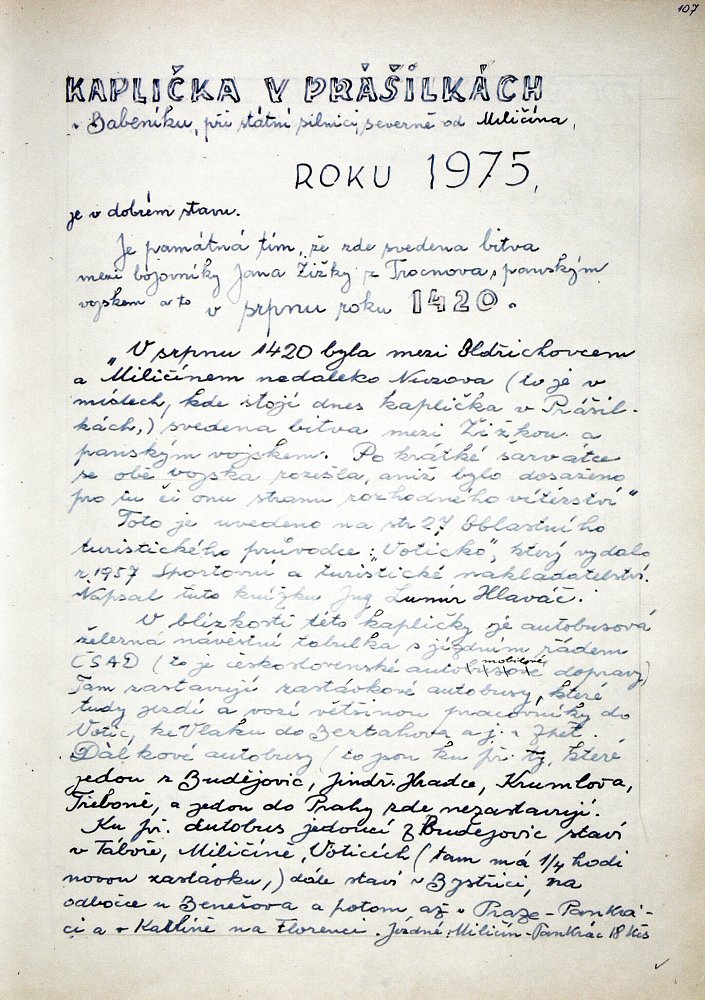 107
KAPLIČKA V PRÁŠILKÁCH
v Babeníku, při státní silnici, severně od Miličína,
ROKU 1975,
je v dobrém stavu.
Je památná tím, že zde svedena bitva
mezi bojovníky Jana Žižky z Trocnova s panským
vojskem a to v srpnu roku 1420.
„V srpnu 1420 byla mezi Oldřichovcem
a Miličínem nedaleko Nuzova (to je v
místech, kde stojí dnes kaplička v Prášil-
kách,) svedena bitva mezi Žižkou a
panským vojskem. Po krátké šarvátce
se obě vojska rozešla, aniž bylo dosaženo
pro tu či onu stranu rozhodného vítězství"
Toto je uvedeno na str 27 Oblastního
turistického průvodce: „Voticko", který vydalo
r. 1957 Sportovní a turistické nakladatelství.
Napsal tuto knížku Jng Lumír Hlaváč.
V blízkosti této kapličky je autobusová
železná návěstní tabulka s jízdním řádem
ČSAD (to je československé automobilové dopravy)
Tam zastavují zastávkové autobusy, které
tudy jezdí a vozí většinou pracovníky do
Votic, ke vlaku do a j. a zpět.
Dálkové autobusy (to jsou ku př. ty, které
jedou z Budějovic, Jindř. Hradce, Krumlova,
Třeboně, a jedou do Prahy zde nezastavují.
Ku př. autobus jedoucí z Budějovic staví
v Táboře, Miličíně, Voticích (tam má 1/4 hodi
novou zastávku,) dále staví v Bystřici, na
odbočce u Benešova a potom až v Praze-Pankrá-
ci a v Karlíně na Florenci. Jízdné: Miličín-Pankrác 18 Kčs